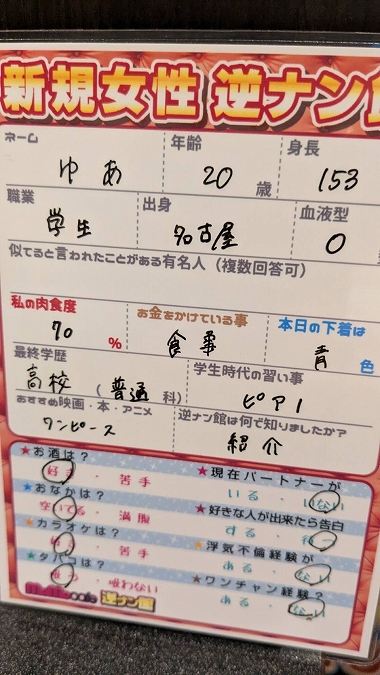 新規女性 逆ナン館
ネーム 年齢 身長
ゆあ 20歳 153
職業 出身 血液型
学生 名古屋 O
似てると言われたことがある有名人（複数回答可）
私の肉食度 お金をかけている事 本日の下着は
70% 食事 青色
最終学歴 学生時代の習い事
高校（普通科） ピアノ
おすすめ映画・本・アニメ 逆ナン館は何で知りましたか？
ワンピース 紹介
★お酒は？ ★現在パートナーが
好き・苦手 いる・いない
★おなかは？ ★好きな人が出来たら告白
空いてる・満腹 する・待つ
★カラオケは？ ★浮気不倫経験が
好き・苦手 ある・ない
★タバコは？ ★ワンチャン経験？
吸う・吸わない ある・ない
逆ナン館